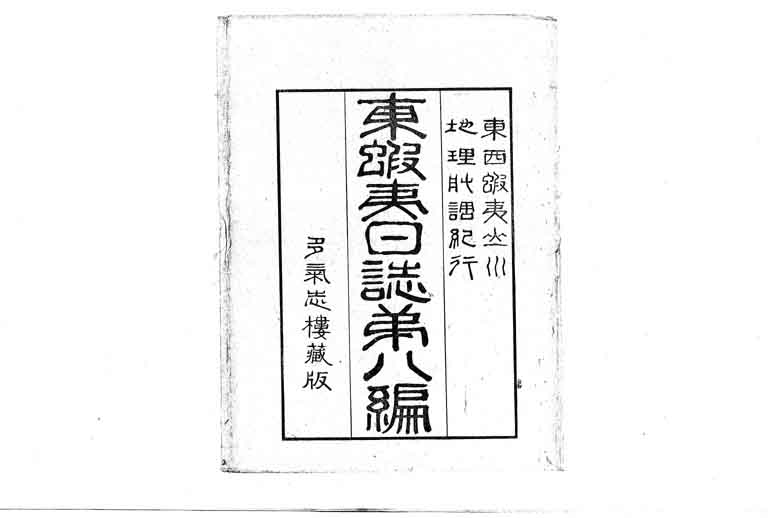 東西蝦夷山川
地理取調紀行
東蝦夷日誌第八編
多氣志樓藏版